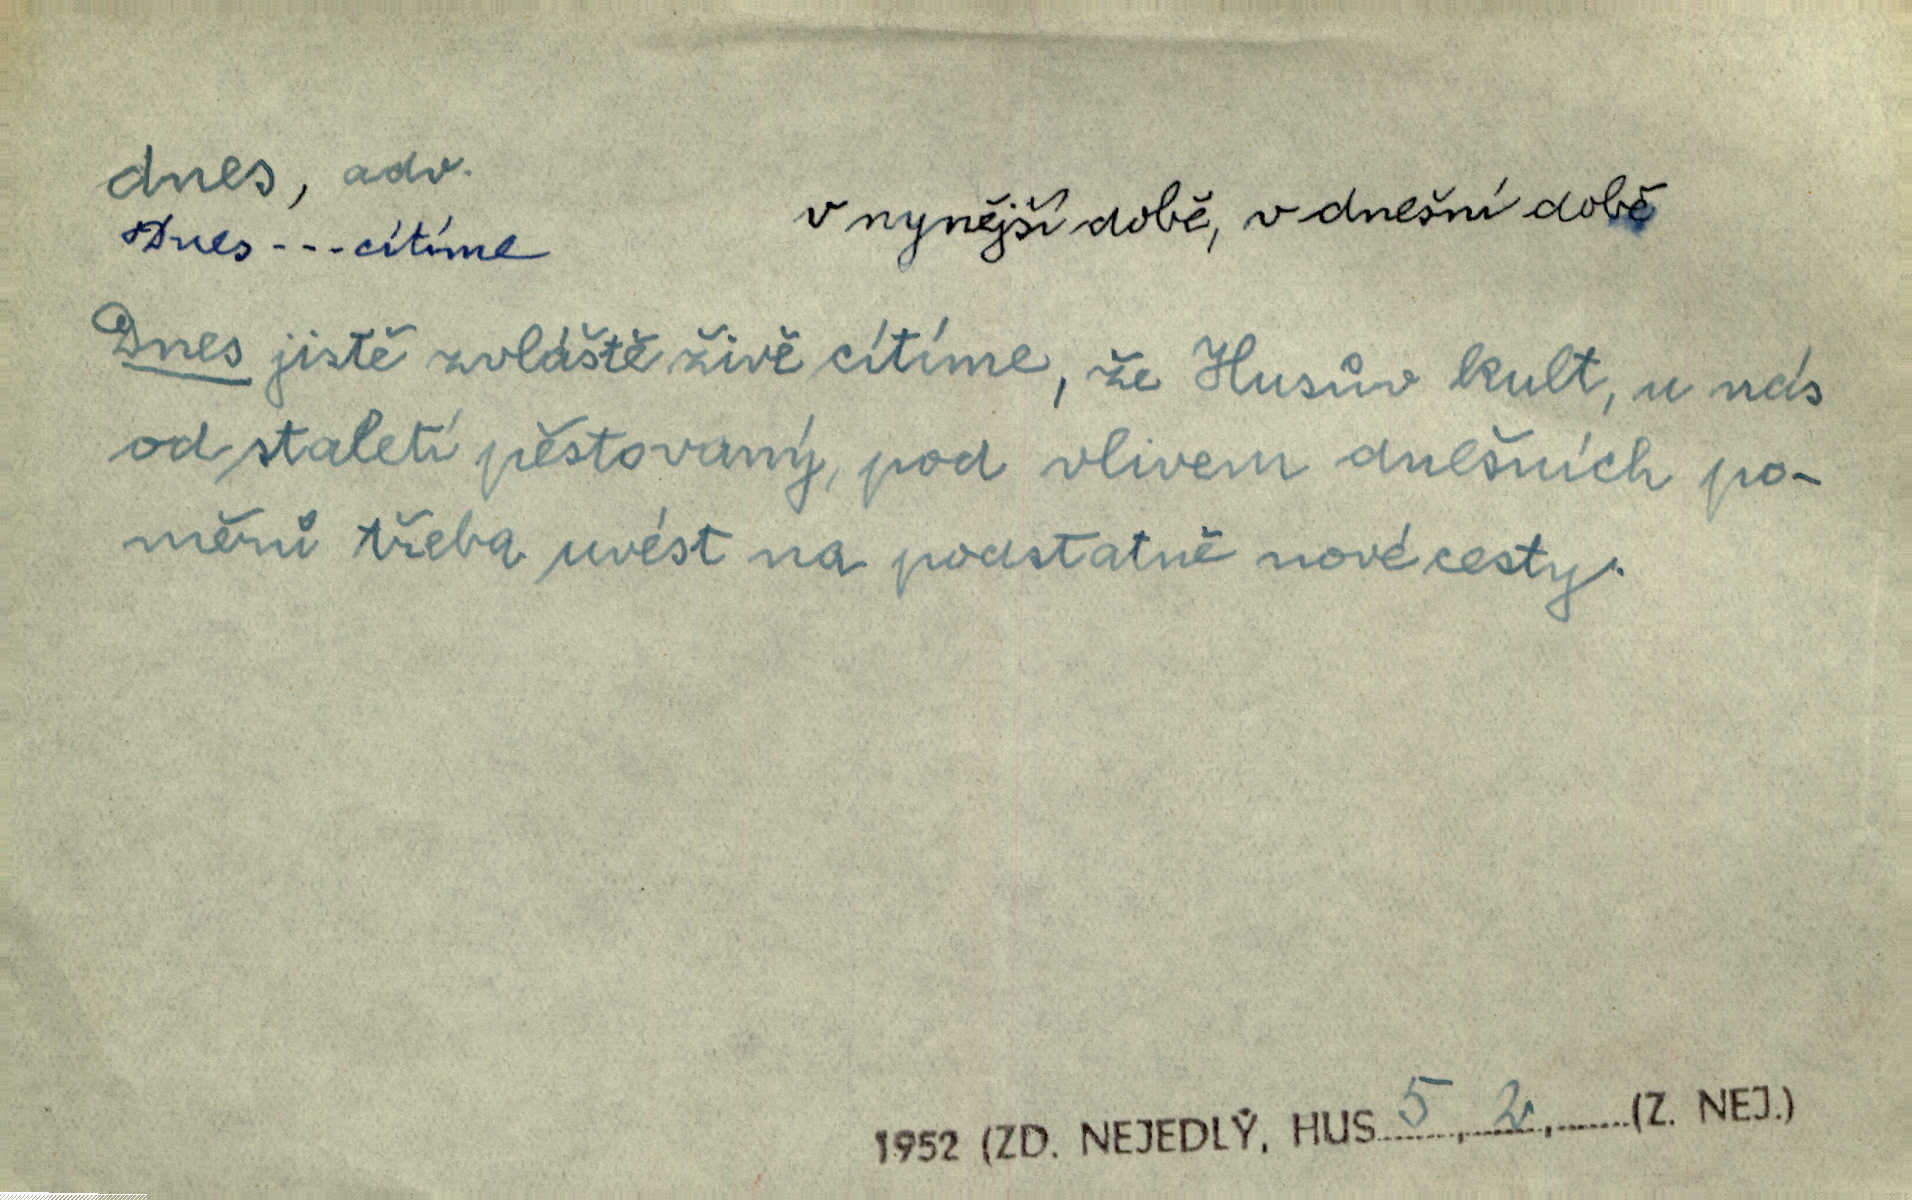 dnes, adv.
v nynější době, v dnešní době
Dnes - - - cítíme
Dnes jistě zvláště živě cítíme, že Husův kult, u nás
od staletí pěstovaný, pod vlivem dnešních po-
měrů třeba uvést na podstatně nové cesty.
1952 (ZD. NEJEDLÝ, HUS 5, 2, (Z. NEJ.)